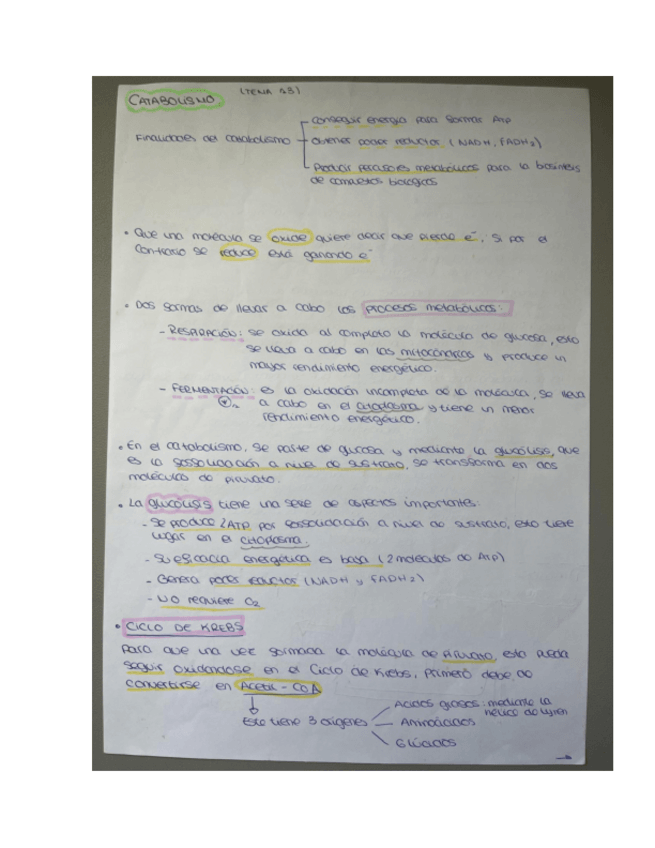 CATABOLISMO (TEMA 13)
Conseguir energía para formar ATP
Finalidades del catabolismo Obtener poder reductor (NADH, FADH₂)
Producir precursores metabólicos para la biosíntesis
de compuestos biológicos
• Que una molécula se oxide quiere decir que pierde e⁻, si por el
contrario se reduce está ganando e⁻
• Dos formas de llevar a cabo los procesos metabólicos:
- RESPIRACIÓN: se oxida al completo la molécula de glucosa, esto
se lleva a cabo en las mitocondrias y produce un
mayor rendimiento energético.
- FERMENTACIÓN: es la oxidación incompleta de la molécula, se lleva
a cabo en el citoplasma y tiene un menor
rendimiento energético.
• En el catabolismo, se parte de glucosa y mediante la glucólisis, que
es la fosforilación a nivel de sustrato, se transforma en dos
moléculas de piruvato.
• La glucólisis tiene una serie de aspectos importantes:
- Se produce 2ATP por fosforilación a nivel de sustrato, esto tiene
lugar en el citoplasma.
- Su eficacia energética es baja (2 moléculas de ATP)
- Genera poder reductor (NADH y FADH₂)
- NO requiere O₂
• CICLO DE KREBS
Para que una vez formada la molécula de piruvato, esta pueda
seguir oxidándose en el Ciclo de Krebs, primero debe de
convertirse en Acetil-CoA
Este tiene 3 orígenes Ácidos grasos: mediante la
hélice de Lynen
Aminoácidos
Glúcidos